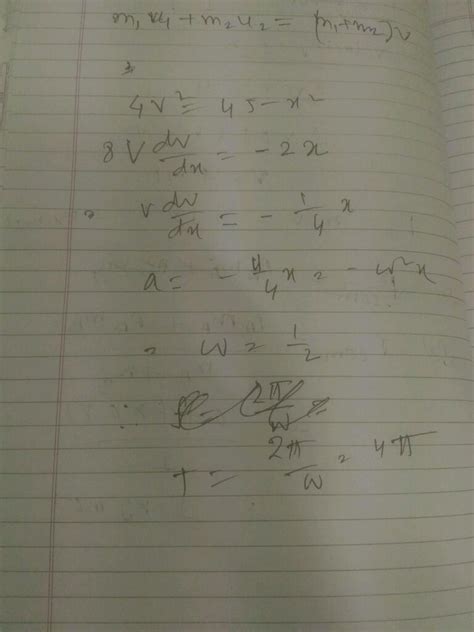 m₁ u₁ + m₂ u₂ = (m₁+m₂) v
4v² = 45 - x²
8 V dv/dx = - 2x
= v dv/dx = - 1/4 x
a = - 1/4 x = - w²x
= w = 1/2
∴ 2π/w =
T = 2π/w = 4π